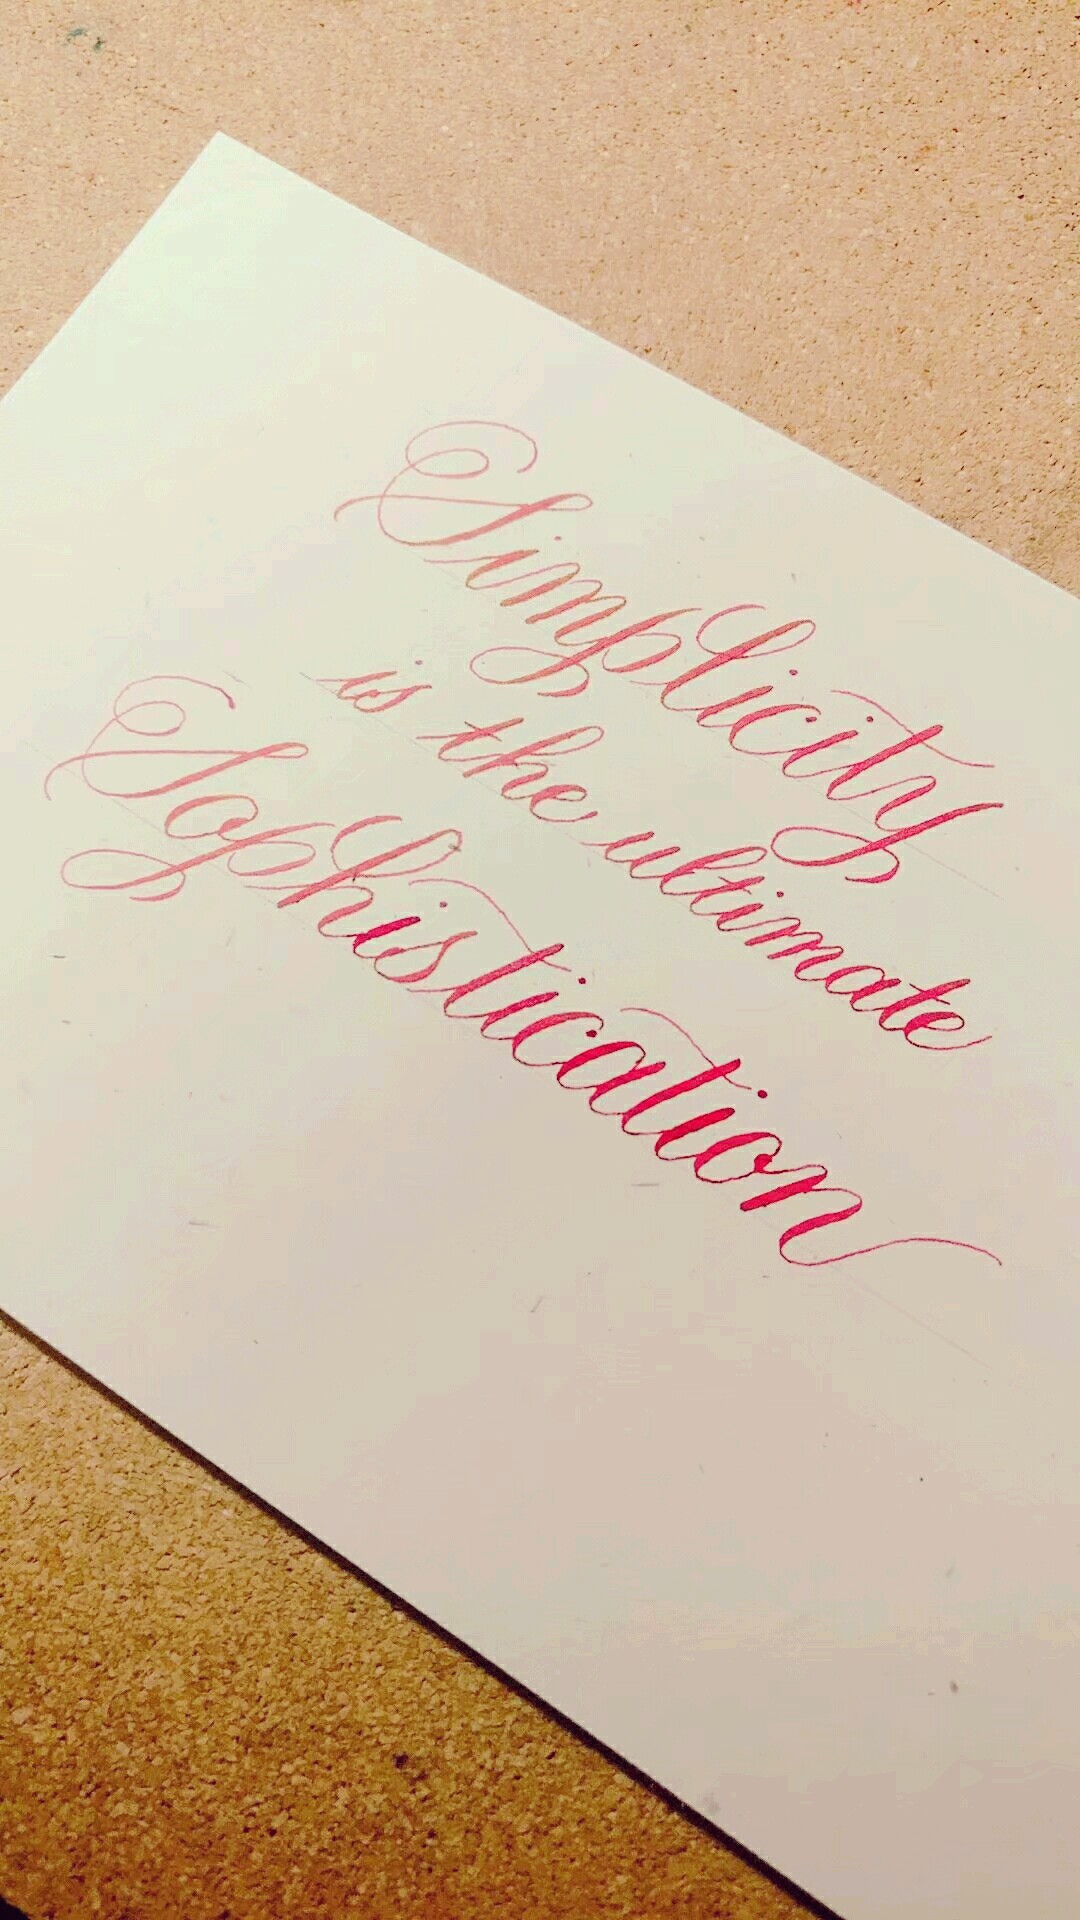 Simplicity
is the ultimate
Sophistication